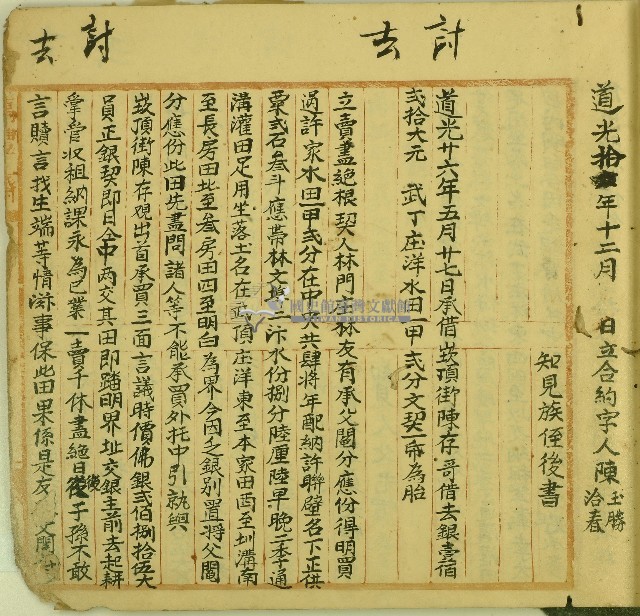 道光拾年十二月 日立合約字人陳玉勝
洽春
知見族侄後書
討去
討去
道光廿六年五月廿七日承借崁頂街陳存哥借去銀壹佰
弍拾大元 武丁庄洋水田一甲弍分文契一帋為胎
立賣盡絕根契人林門至林友有承父鬮分應份得明買
過許家水田一甲弍分在中共肆將年配納許聯璧名下正供
粟弍石叁斗應帶林文 汴水份捌分陸厘陸早晚二季通
溝灌田足用坐落土名在武頂庄洋東至本家田西至圳溝南
至長房田北至叁房田四至明白為界今因乏銀別置將父鬮
分應份此田先盡問諸人等不能承買外托中引就與
崁頂街陳存觀出首承買三面言議時價佛銀弍佰捌拾伍大
員正銀契即日仝中兩交其田即踏明界址交銀主前去起耕
掌管收租納課永為己業一賣千休盡絕日後子孫不敢
言贖言找生端等情滋事保此田果係是友 父鬮
國史館臺灣文獻館
TAIWAN HISTORICA